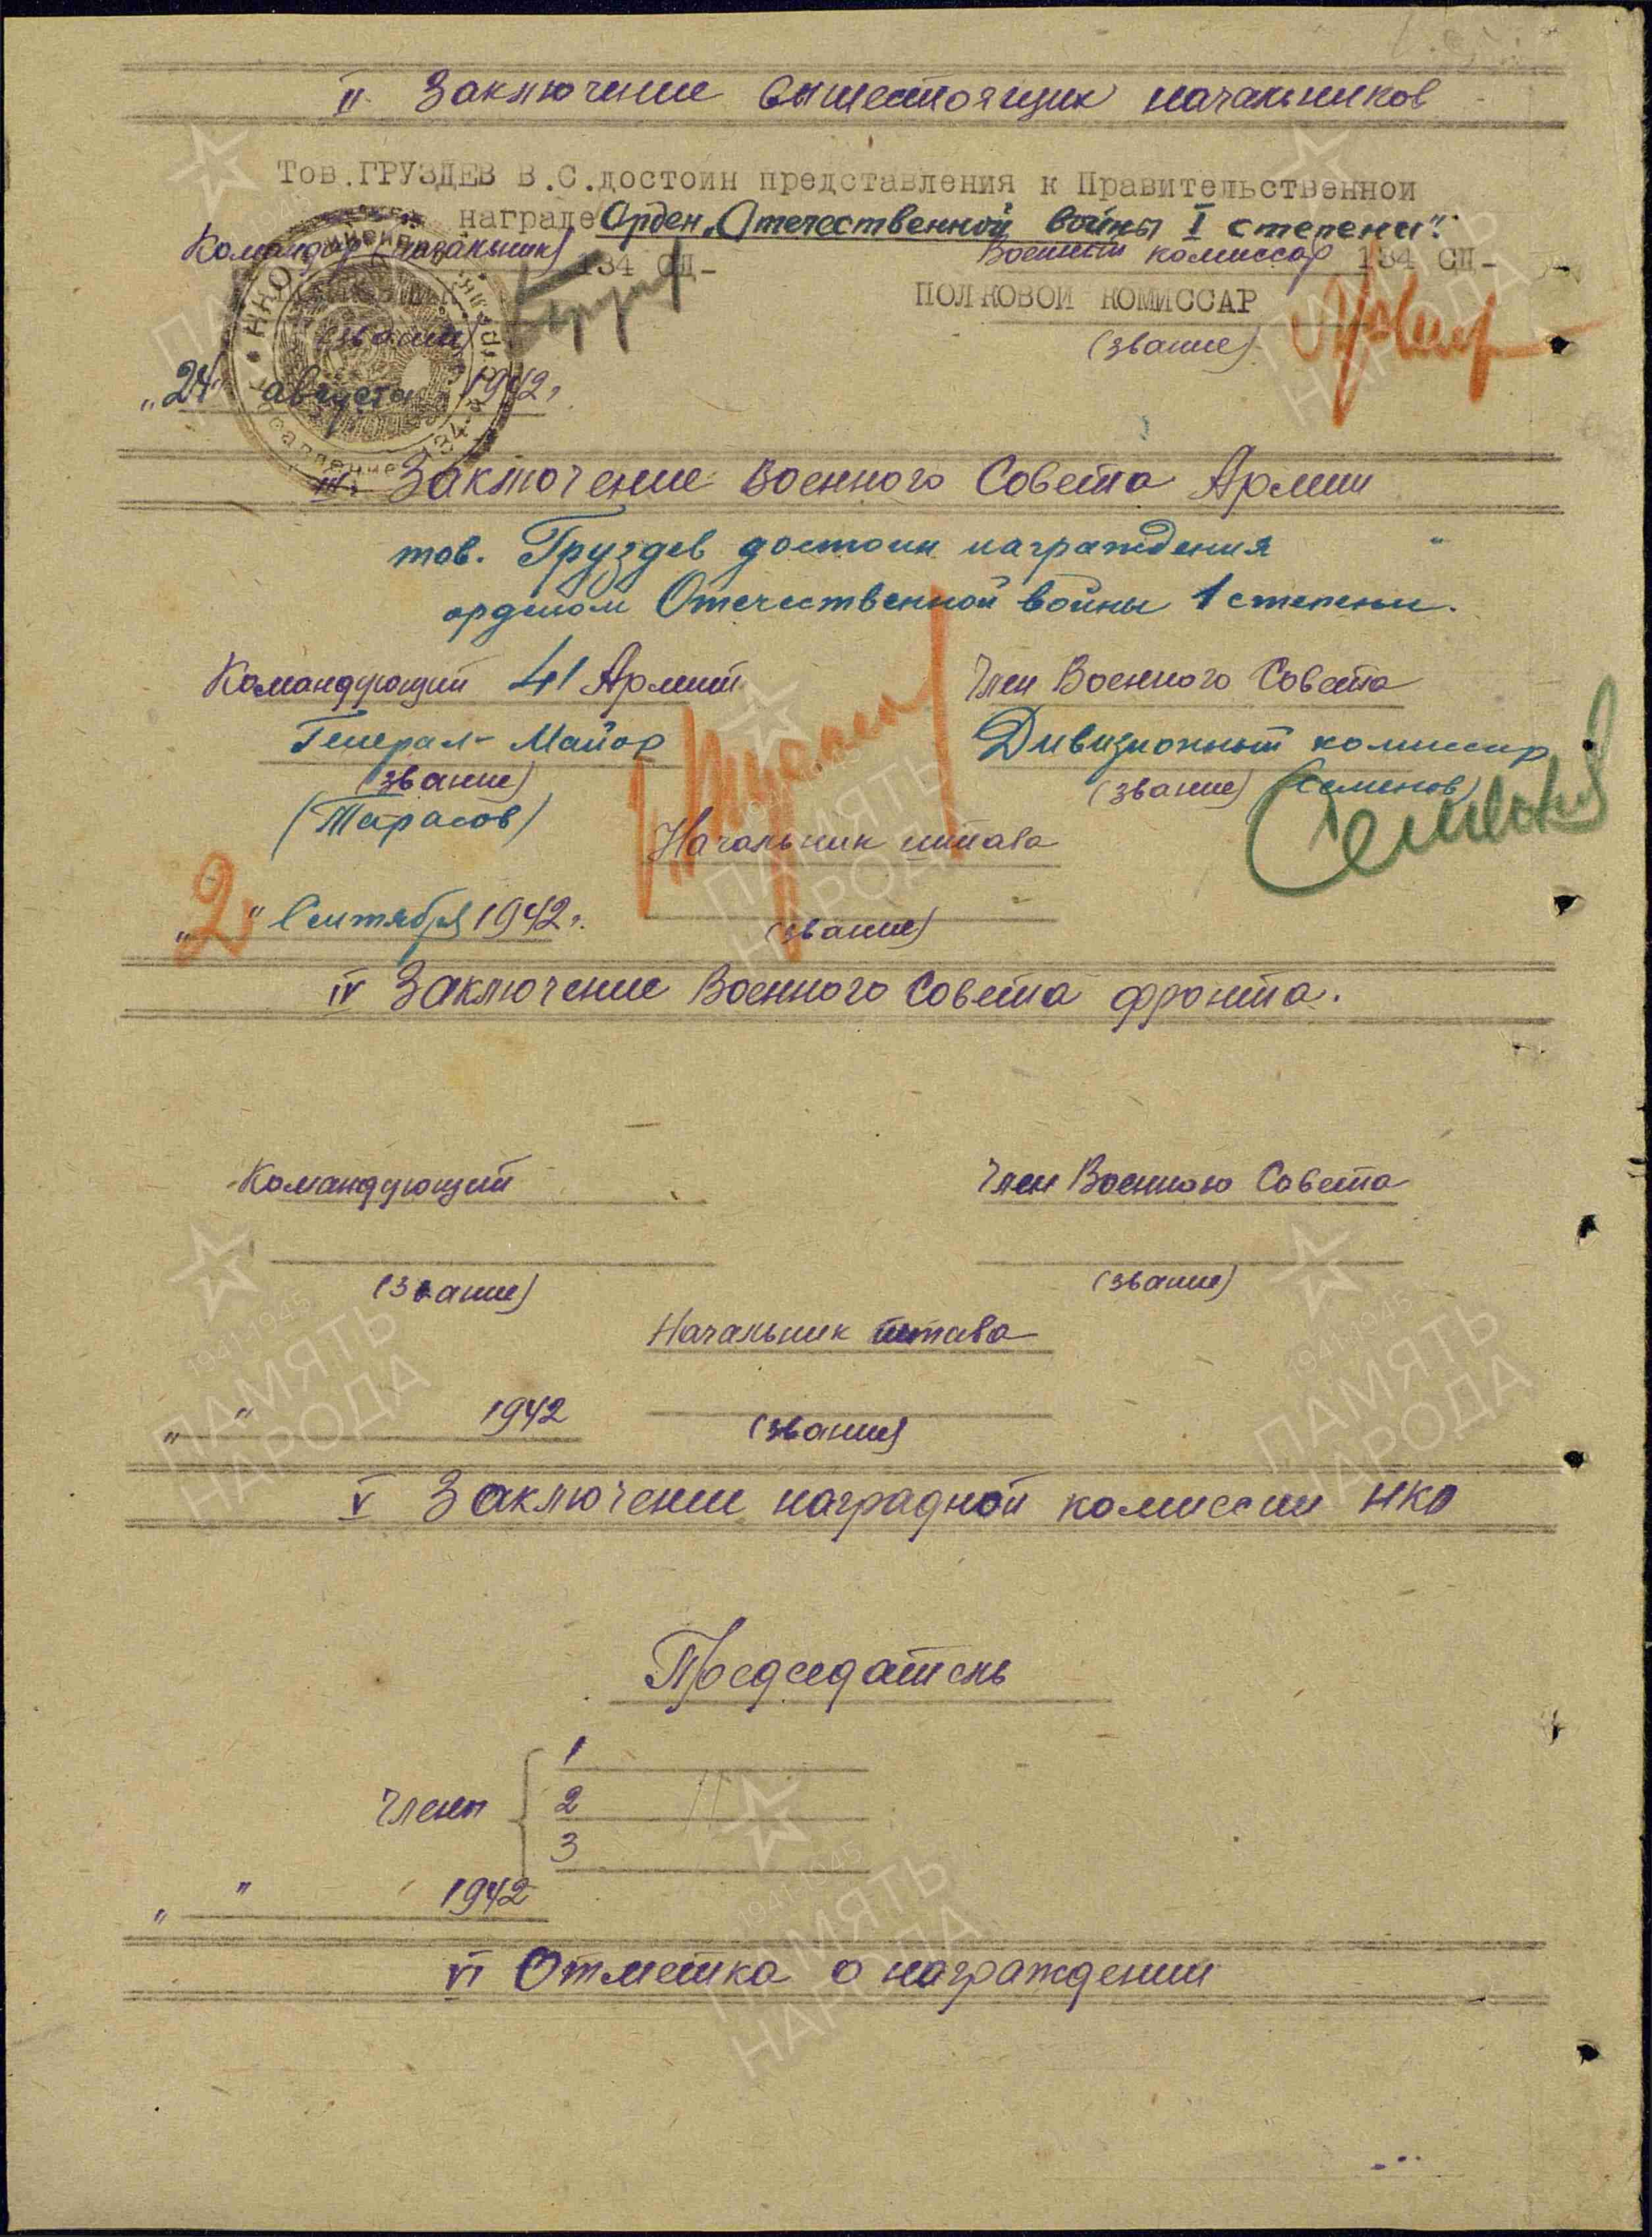 II Заключение вышестоящих начальников
Тов. ГРУЗДЕВ В.С. достоин представления к Правительственной
награде Орден „Отечественной войны I степени".
Командир (начальник) 134 СД- Военный комиссар 134 СД-
ПОЛКОВОЙ КОМИССАР
(звание) (звание)
„24" августа 1942г.
III. Заключение Военного Совета Армии
тов. Груздев достоин награждения
орденом Отечественной войны 1 степени.
Командующий 41 Армии Член Военного Совета
Генерал-Майор Дивизионный комиссар
(звание) (звание) (Семенов)
(Тарасов)
Начальник штаба
„2" Сентября 1942г.
(звание)
IV Заключение Военного Совета фронта.
Командующий Член Военного Совета
(звание) (звание)
Начальник штаба
„ " 1942
(звание)
V Заключение наградной комиссии НКО
Председатель
1
Члены 2
3
„ " 1942
VI Отметка о награждении
1941-1945
ПАМЯТЬ
НАРОДА